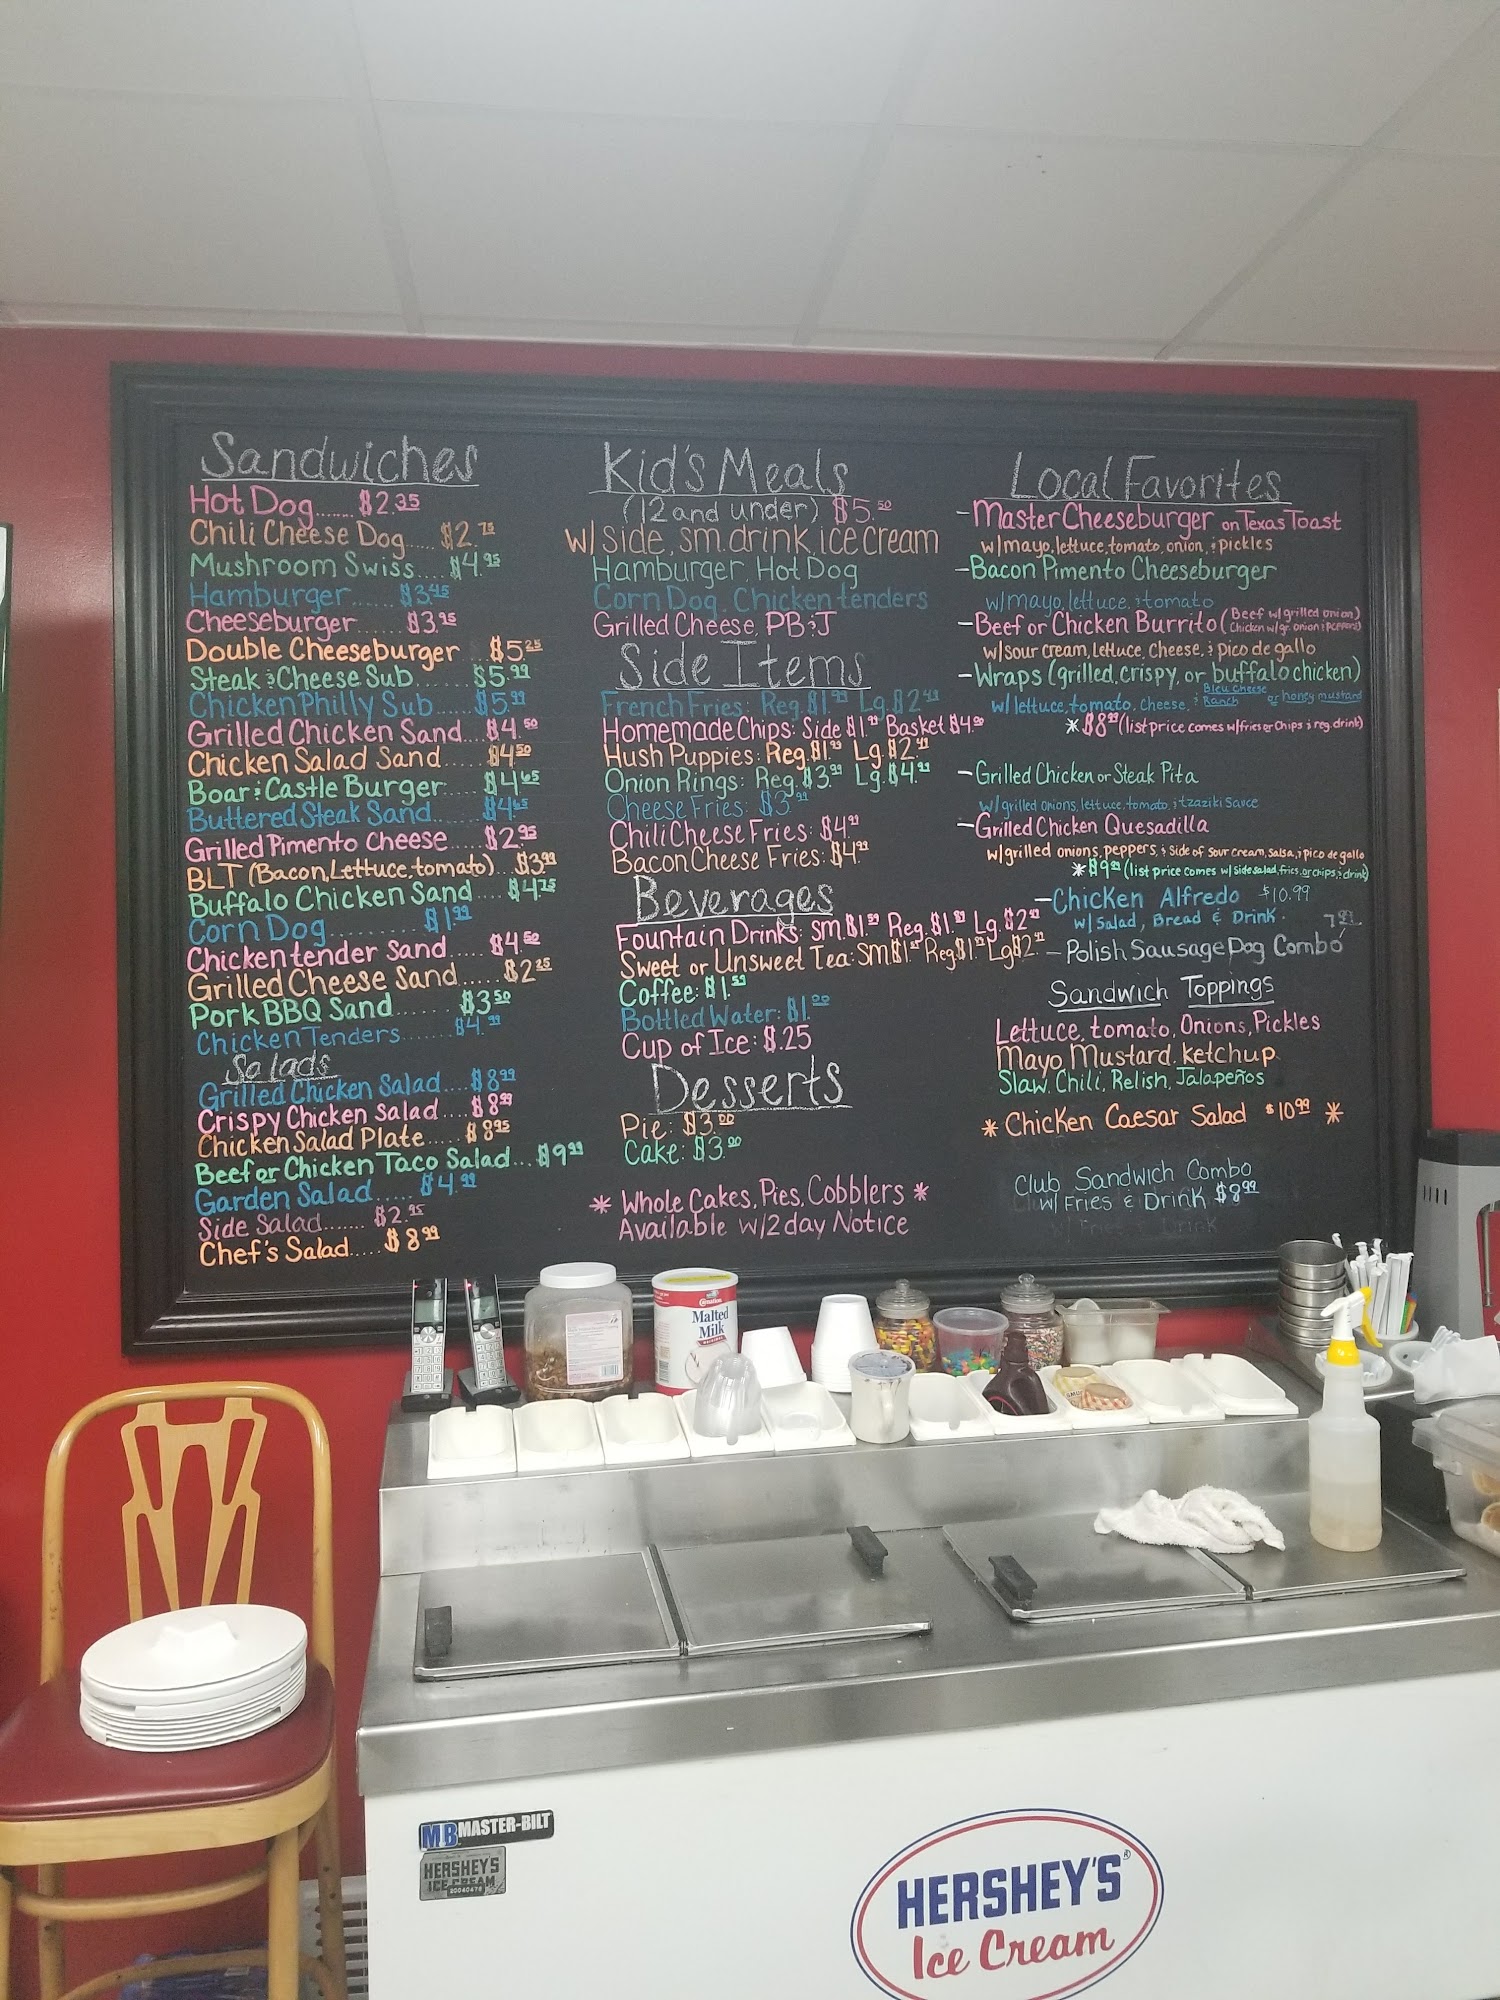 Sandwiches
Hot Dog...... $2.35
Chili Cheese Dog..... $2.75
Mushroom Swiss.... $4.95
Hamburger...... $3.45
Cheeseburger....... $3.95
Double Cheeseburger ... $5.25
Steak & Cheese Sub....... $5.99
Chicken Philly Sub..... $5.99
Grilled Chicken Sand.... $4.50
Chicken Salad Sand..... $4.50
Boar & Castle Burger..... $4.65
Buttered Steak Sand..... $4.65
Grilled Pimento Cheese .... $2.95
BLT (Bacon, Lettuce, tomato)... $3.99
Buffalo Chicken Sand .... $4.75
Corn Dog ........... $1.99
Chicken tender Sand..... $4.50
Grilled Cheese Sand..... $2.25
Pork BBQ Sand........ $3.50
Chicken Tenders........ $4.99
Salads
Grilled Chicken Salad....$8.99
Crispy Chicken Salad....$8.99
Chicken Salad Plate..... $8.95
Beef or Chicken Taco Salad...$9.99
Garden Salad..... $4.99
Side Salad....... $2.95
Chef's Salad..... $8.99
Kid's Meals
(12 and under) $5.50
w/ side, sm. drink, ice cream
Hamburger, Hot Dog
Corn Dog, Chicken tenders
Grilled Cheese, PB&J
Side Items
French Fries: Reg. $1.99 Lg. $2.49
Homemade Chips: Side $1.99 Basket $4.00
Hush Puppies: Reg. $1.99 Lg. $2.49
Onion Rings: Reg. $3.99 Lg. $4.99
Cheese Fries: $3.99
Chili Cheese Fries: $4.99
Bacon Cheese Fries: $4.99
Beverages
Fountain Drinks: SM. $1.59 Reg. $1.89 Lg. $2.49
Sweet or Unsweet Tea: SM Reg. Lg $2.
Coffee: $1.59
Bottled Water: $1.00
Cup of Ice: $.25
Desserts
Pie: $3.00
Cake: $3.00
* Whole Cakes, Pies, Cobblers *
Available w/2 day Notice
Local Favorites
-Master Cheeseburger on Texas Toast
w/mayo, lettuce, tomato, onion, & pickles
-Bacon Pimento Cheeseburger
w/mayo, lettuce, & tomato
-Beef or Chicken Burrito (Beef w/ grilled onion)
(Chicken w/ gr. onion & peppers)
w/sour cream, lettuce, cheese, & pico de gallo
-Wraps (grilled, crispy, or buffalo chicken)
w/ lettuce, tomato, cheese, & Bleu Cheese Ranch or honey mustard
* $8.99 (list price comes w/fries or chips & reg. drink)
-Grilled Chicken or Steak Pita
w/grilled onions, lettuce, tomato, & tzaziki sauce
-Grilled Chicken Quesadilla
w/grilled onions, peppers, & side of sour cream, salsa, & pico de gallo
* $9.99 (list price comes w/ side salad, fries, or chips, & drink)
-Chicken Alfredo $10.99
w/ Salad, Bread & Drink.
-Polish Sausage Dog Combo 7.99
Sandwich Toppings
Lettuce, tomato, Onions, Pickles
Mayo, Mustard, ketchup
Slaw, Chili, Relish, Jalapeños
* Chicken Caesar Salad $10.99 *
Club Sandwich Combo
w/ Fries & Drink $8.99
w/ Fries & Drink
Carnation
Malted
Milk
MB MASTER-BILT
HERSHEY'S
ICE CREAM
20040476
HERSHEY'S®
Ice Cream